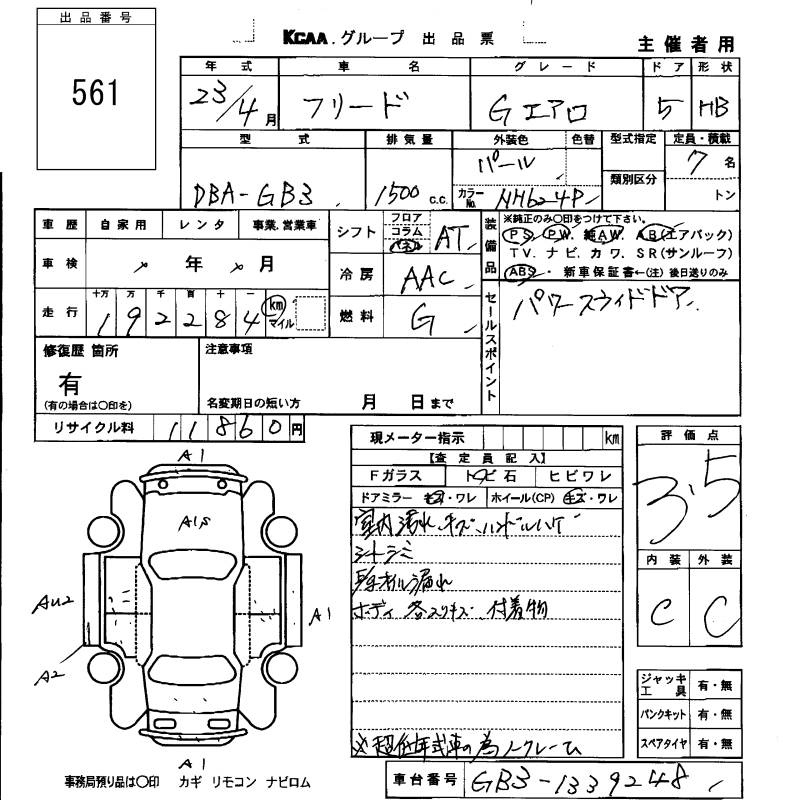 出品番号
561
KCAA.グループ 出品票
主催者用
年式 車名 グレード ドア 形状
23/4月 フリード Gエアロ 5 HB
型式 排気量 外装色 色替 型式指定 定員・積載
DBA-GB3 1500 c.c. パール 7名
カラーNo. NH624P 類別区分 トン
車歴 自家用 レンタ 事業.営業車
シフト フロア コラム AT
装備品 ※純正のみ○印をつけて下さい。
PS. PW. 純AW. AB(エアバック)
TV. ナビ. カワ. SR(サンルーフ)
ABS・ 新車保証書←(注)後日送りのみ
車検 年 月
冷房 AAC
走行 十万 万 千 百 十 一
192284 km マイル
燃料 G
セールスポイント パワースライドドア
修復歴 箇所
有
(有の場合は○印を)
注意事項
名変期日の短い方 月 日まで
リサイクル料 11860円
現メーター指示 km
【査定員記入】
Fガラス トビ石 ヒビワレ
ドアミラー キズ・ワレ ホイール(CP) キズ・ワレ
室内汚れ、キズ、ハンドルハゲ
シートシミ
オイル漏れ
ボディ 各スリキズ、付着物
※超低年式車の為ノークレーム
評価点
3.5
内装 外装
C C
ジャッキ工具 有・無
パンクキット 有・無
スペアタイヤ 有・無
A1
A1S
AU2
A2
A1
A1
事務局預り品は○印 カギ リモコン ナビロム
車台番号 GB3-1339248